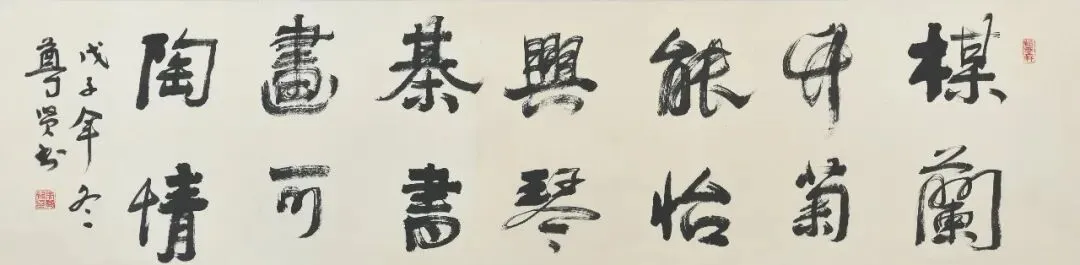 楳蘭
竹菊
能怡
興琴
棊書
畫可
陶情
戊子年冬
尊贤书